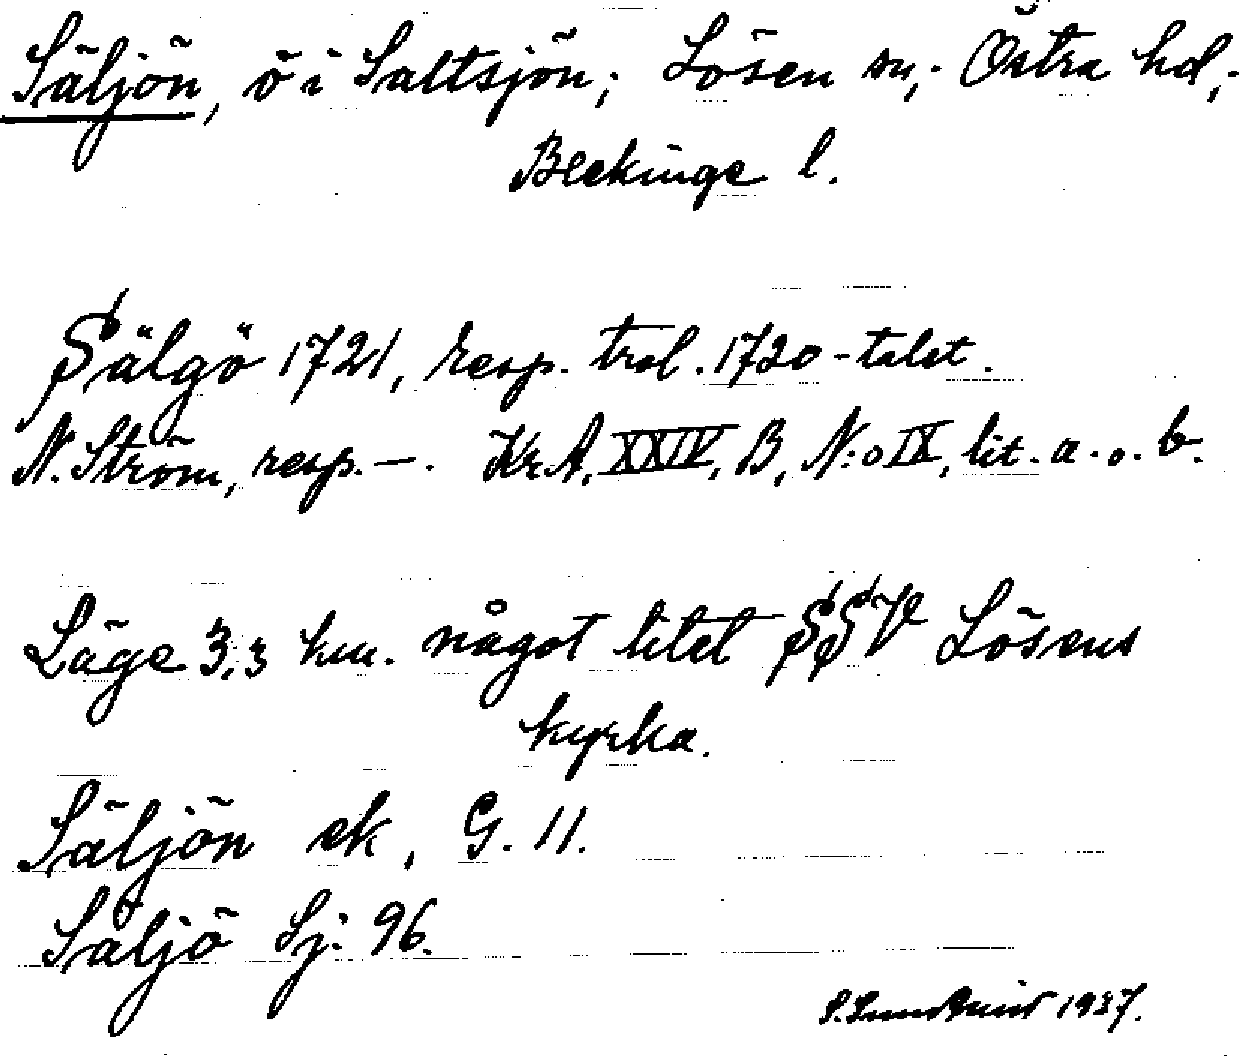 Säljön, ö i Saltsjön; Lösen sn,- Östra hd,-
Blekinge l.
Sälgö 1721, resp. trol. 1720-talet.
N. Ström, resp. —. Kr.A, XXIV, B, N:o IX, lit. a. o. b.
Läge 3,3 km. något litet SSV Lösens
kyrka.
Säljön ek, G. 11.
Säljö Sj. 96.
1937.